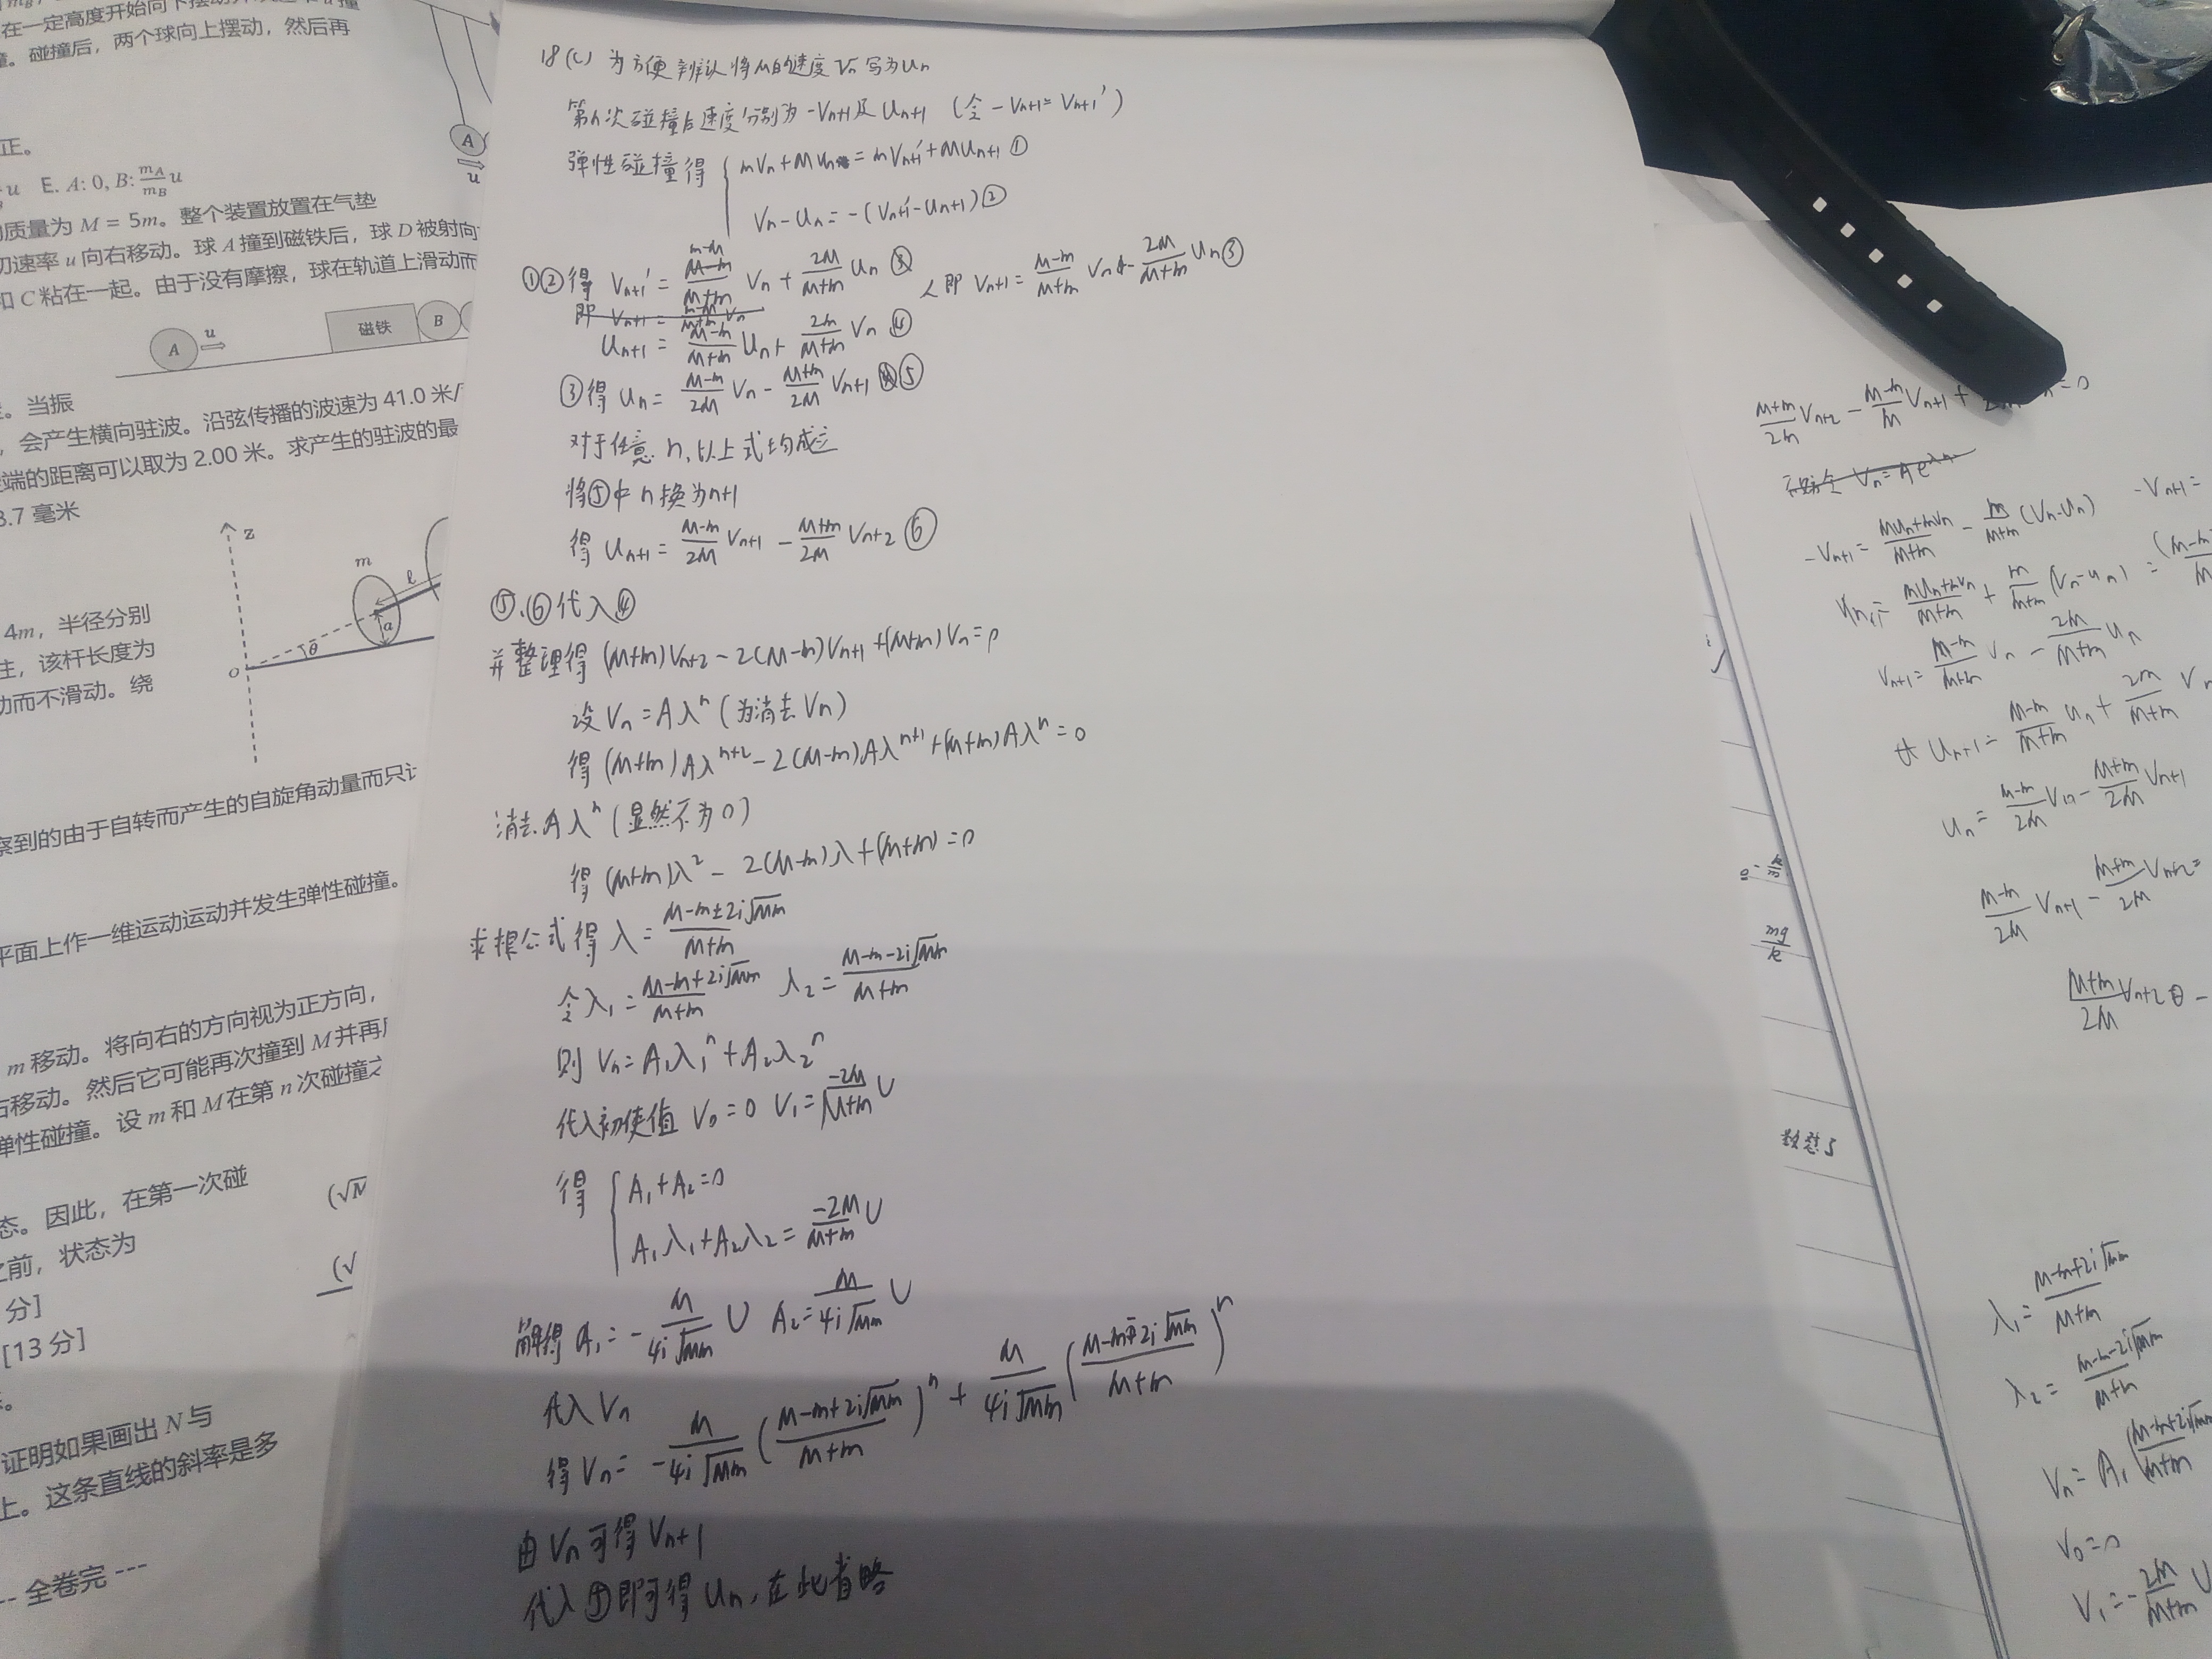 在一定高度开始向下摆动
撞。碰撞后，两个球向上摆动，然后再
正。
u E. A: 0, B: \frac{m_A}{m_B}u
质量为 M = 5m。整个装置放置在气垫
初速率 u 向右移动。球 A 撞到磁铁后，球 D 被射向
和 C 粘在一起。由于没有摩擦，球在轨道上滑动而
A
u
A
u
磁铁
B
。当振
，会产生横向驻波。沿弦传播的波速为 41.0 米/
端的距离可以取为 2.00 米。求产生的驻波的最
3.7 毫米
z
m
ℓ
a
θ
o
4m，半径分别
注，该杆长度为
动而不滑动。绕
察到的由于自转而产生的自旋角动量而只计
平面上作一维运动运动并发生弹性碰撞。
m 移动。将向右的方向视为正方向，
右移动。然后它可能再次撞到 M 并再
弹性碰撞。设 m 和 M 在第 n 次碰撞之
态。因此，在第一次碰
之前，状态为
分]
[13 分]
证明如果画出 N 与
上。这条直线的斜率是多
--- 全卷完 ---
18(c) 为方便辨认将M的速度 Vn 写为 Un
第n次碰撞后速度分别为 -Vn+1 及 Un+1 (令 -Vn+1 = Vn+1')
弹性碰撞得 { mVn + MUn = mVn+1' + MUn+1 ①
Vn - Un = -(Vn+1' - Un+1) ②
①②得 Vn+1' = \frac{m-M}{M+m} Vn + \frac{2M}{M+m} Un 即 Vn+1 = \frac{M-m}{M+m} Vn - \frac{2M}{M+m} Un ③
即 Vn+1 =
Un+1 = \frac{M-m}{M+m} Un + \frac{2m}{M+m} Vn ④
③得 Un = \frac{M-m}{2M} Vn - \frac{M+m}{2M} Vn+1 ⑤
对于任意 n, 以上式均成立
将⑤中 n 换为 n+1
得 Un+1 = \frac{M-m}{2M} Vn+1 - \frac{M+m}{2M} Vn+2 ⑥
⑤.⑥代入④
并整理得 (M+m)Vn+2 - 2(M-m)Vn+1 + (M+m)Vn = 0
设 Vn = Aλ^n (为消去 Vn)
得 (M+m)Aλ^{n+2} - 2(M-m)Aλ^{n+1} + (M+m)Aλ^n = 0
消去 Aλ^n (显然不为0)
得 (M+m)λ^2 - 2(M-m)λ + (M+m) = 0
求根公式得 λ = \frac{M-m±2i√Mm}{M+m}
令 λ1 = \frac{M-m+2i√Mm}{M+m} λ2 = \frac{M-m-2i√Mm}{M+m}
则 Vn = A1λ1^n + A2λ2^n
代入初使值 V0 = 0 V1 = \frac{-2M}{M+m} U
得 { A1 + A2 = 0
A1λ1 + A2λ2 = \frac{-2M}{M+m} U
解得 A1 = - \frac{M}{4i√Mm} U A2 = \frac{M}{4i√Mm} U
代入 Vn
得 Vn = - \frac{M}{4i√Mm} (\frac{M-m+2i√Mm}{M+m})^n + \frac{M}{4i√Mm} (\frac{M-m-2i√Mm}{M+m})^n
由 Vn 可得 Vn+1
代入⑤即可得 Un, 在此省略
\frac{M+m}{2M} Vn+2 - \frac{M-m}{M} Vn+1 + = 0
Vn = Ae^{λn}
-Vn+1 = \frac{MUn+mVn}{M+m} - \frac{M}{M+m} (Vn-Un) -Vn+1 =
Un+1 = \frac{MUn+mVn}{M+m} + \frac{m}{M+m} (Vn-Un) =
Vn+1 = \frac{M-m}{M+m} Vn - \frac{2M}{M+m} Un
Un+1 = \frac{M-m}{M+m} Un + \frac{2m}{M+m} Vn
Un = \frac{M-m}{2M} Vn - \frac{M+m}{2M} Vn+1
\frac{M-m}{2M} Vn+1 - \frac{M+m}{2M} Vn+2 =
\frac{mg}{k}
\frac{M+m}{2M} Vn+2 -
λ1 = \frac{M-m+2i√Mm}{M+m}
λ2 = \frac{M-m-2i√Mm}{M+m}
Vn = A1 (\frac{M-m+2i√Mm}{M+m}
V0 = 0
V1 = - \frac{2M}{M+m} U